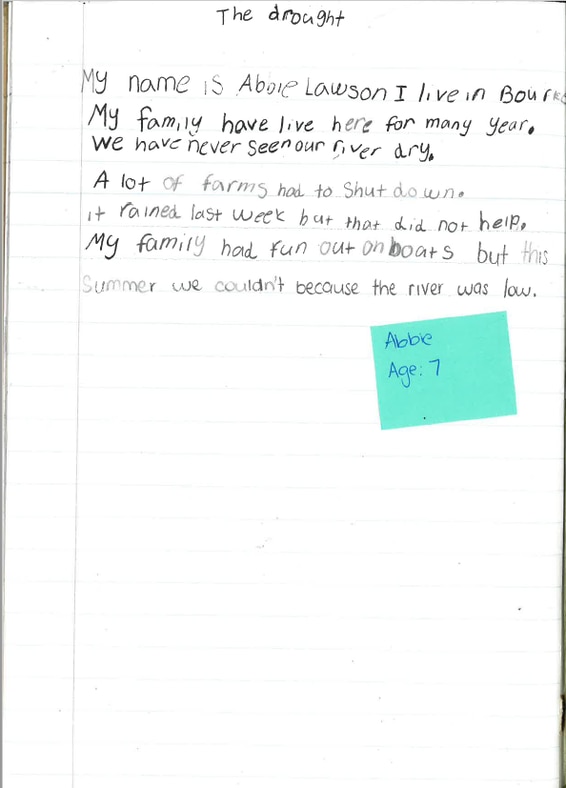 The drought
My name is Abbie Lawson I live in Bourke
My family have live here for many year.
We have never seen our river dry.
A lot of farms had to shut down.
it rained last week but that did not help.
My family had fun out on boats but this
Summer we couldn't because the river was low.
Abbie
Age: 7